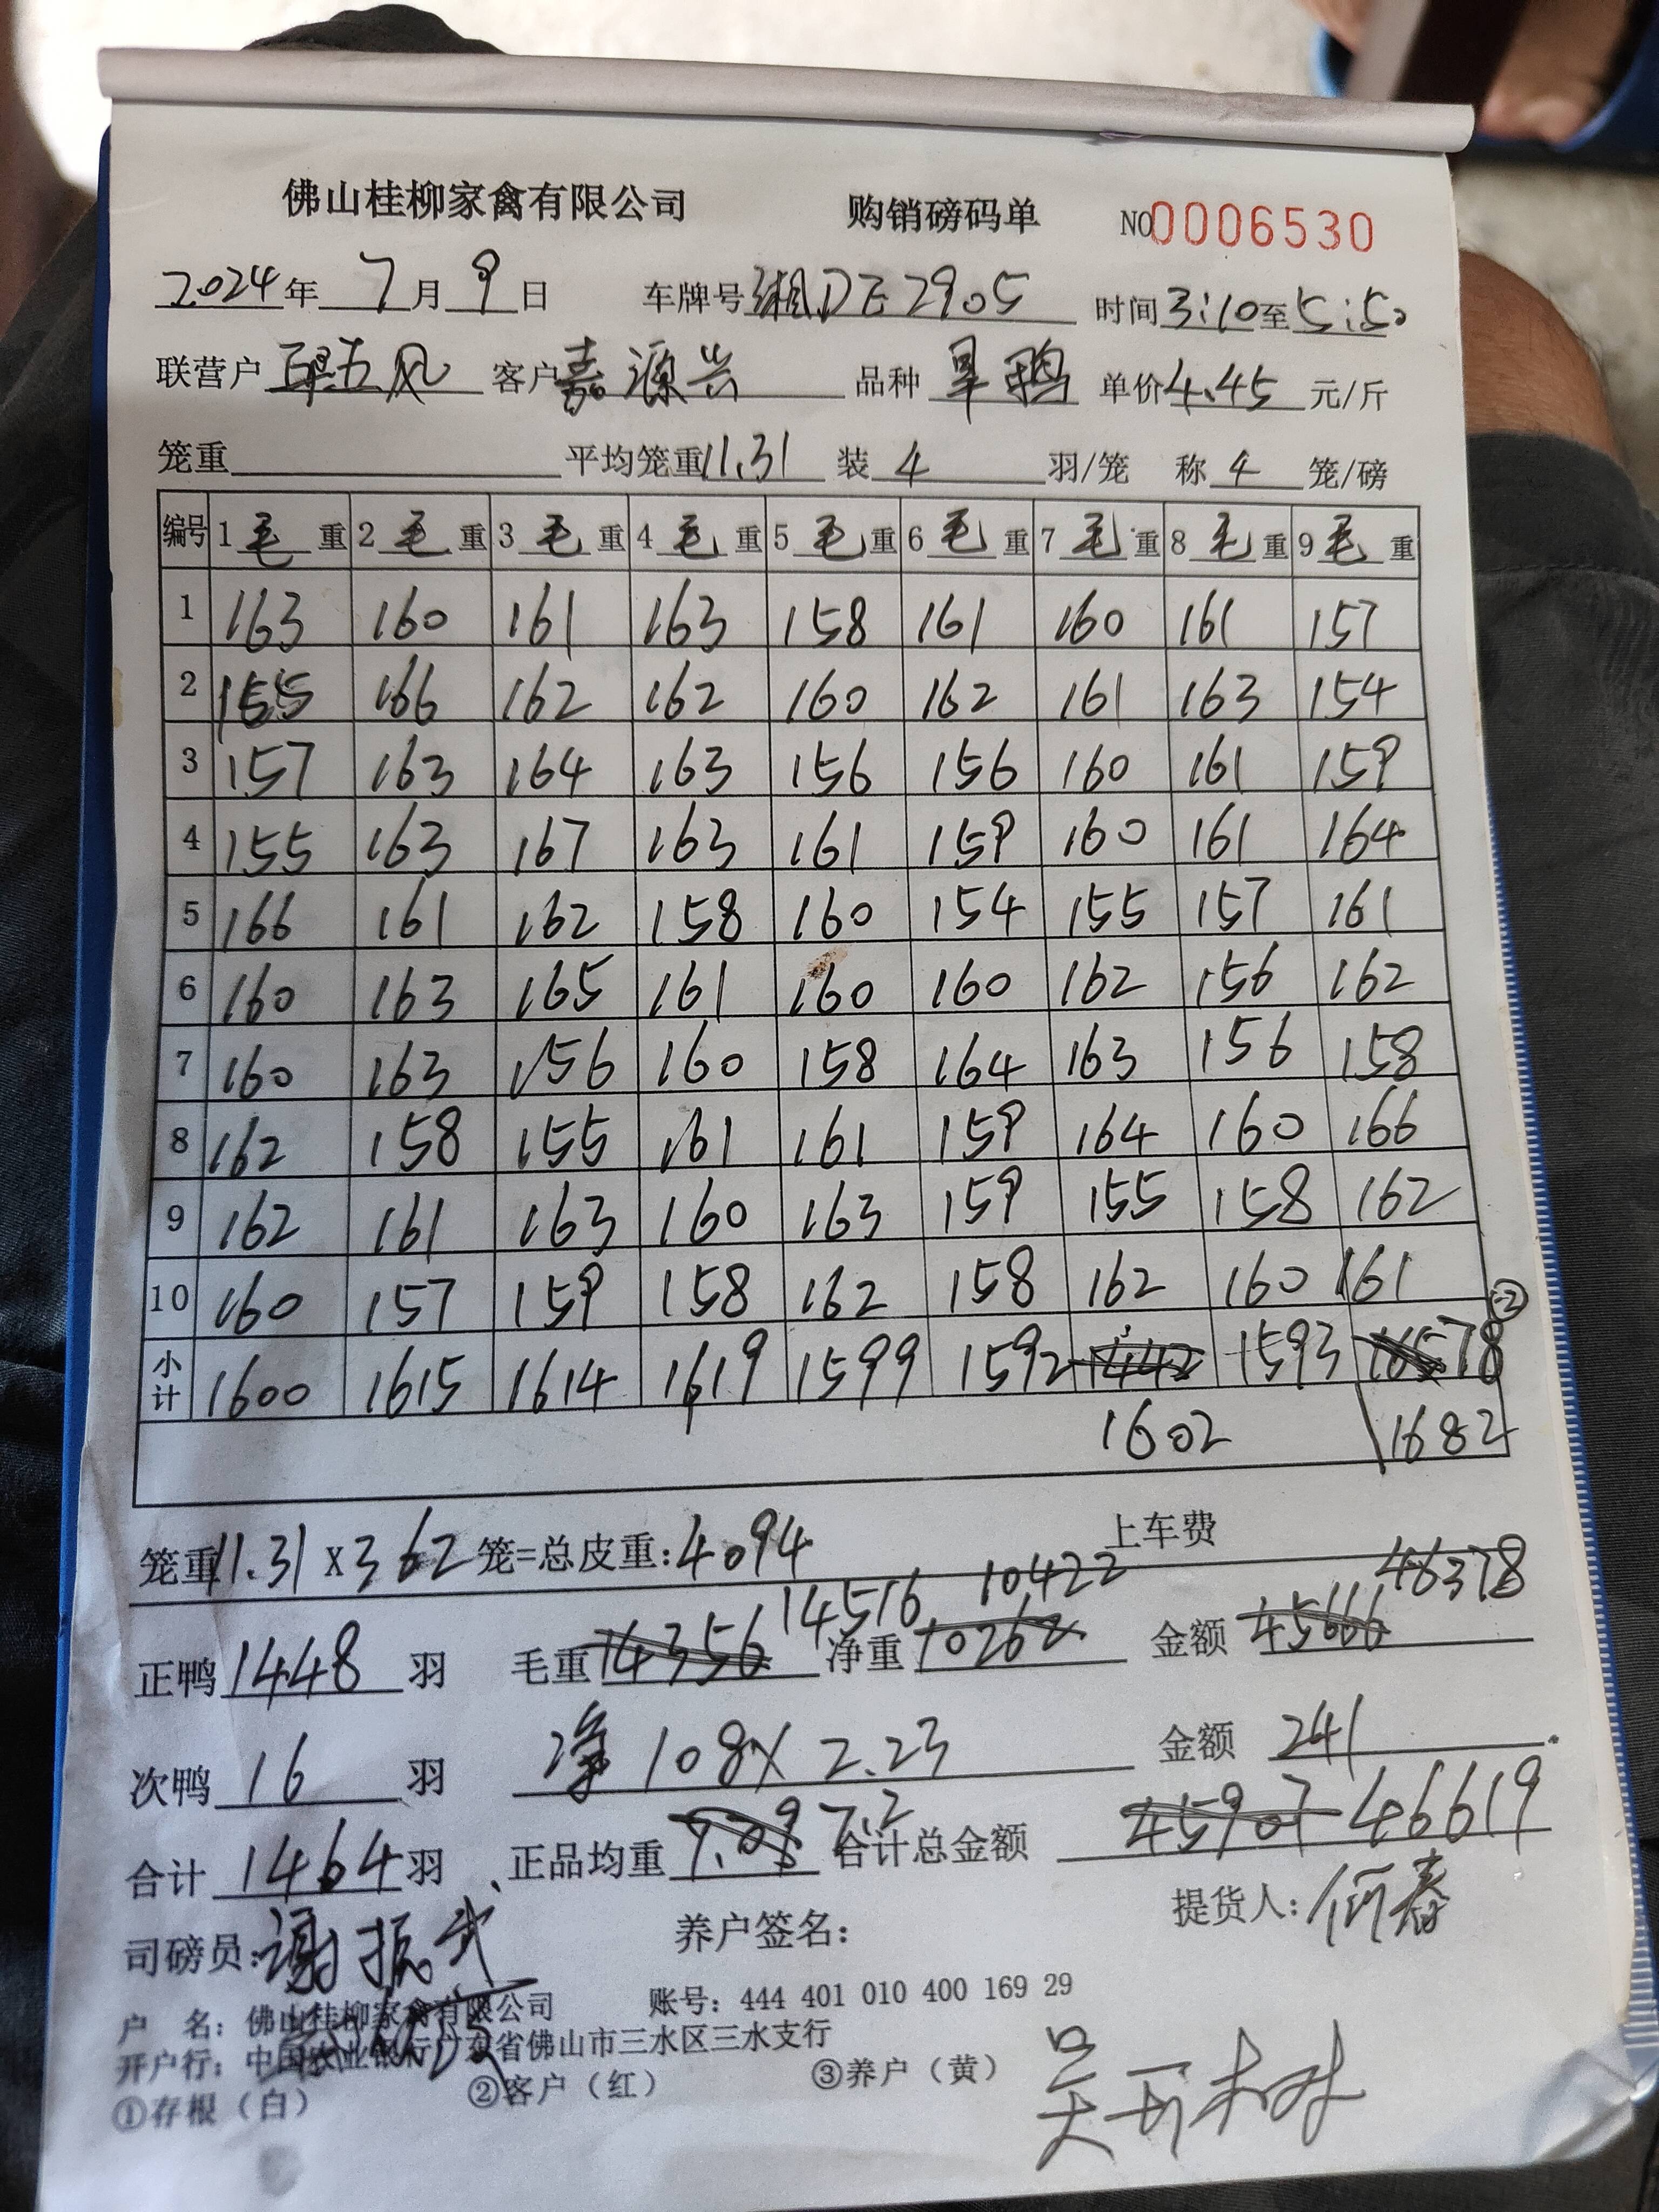 佛山桂柳家禽有限公司 购销磅码单 NO0006530
2024年 7月 9日 车牌号湘DE2905 时间3:10至5:50
联营户 五风 客户嘉源兴 品种 旱鸭 单价4.45 元/斤
笼重 平均笼重11.31 装4 羽/笼 称4 笼/磅
编号 1毛重 2毛重 3毛重 4毛重 5毛重 6毛重 7毛重 8毛重 9毛重
1 163 160 161 163 158 161 160 161 157
2 155 166 162 162 160 162 161 163 154
3 157 163 164 163 156 156 160 161 159
4 155 163 167 163 161 159 160 161 164
5 166 161 162 158 160 154 155 157 161
6 160 163 165 161 160 160 162 156 162
7 160 163 156 160 158 164 163 156 158
8 162 158 155 161 161 159 164 160 166
9 162 161 163 160 163 159 155 158 162
10 160 157 159 158 162 158 162 160 161
小计 1600 1615 1614 1619 1599 1592 1442 1593 78 ②
1602 1682
笼重11.31 x 362 笼=总皮重:4094 上车费
14516 10422 46378
正鸭1448羽 毛重14356 净重10262 金额45666
次鸭16羽 净108X2.23 金额241
合计1464羽 正品均重7.09 7.2 合计总金额 45907 46619
司磅员:谢振武 养户签名: 提货人:何春
户 名: 佛山桂柳家禽有限公司 账号: 444 401 010 400 169 29
开户行: 中国农业银行广东省佛山市三水区三水支行
①存根（白） ②客户（红） ③养户（黄）